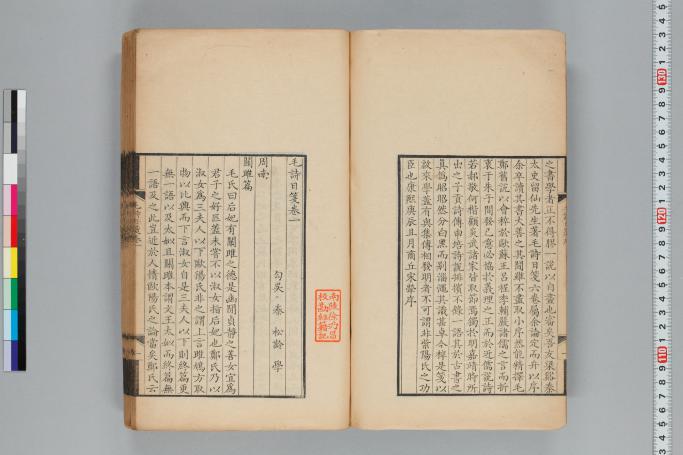 之書學者正不得膠一說以自畫也審矣吾友梁谿秦
太史留仙先生著毛詩日箋六卷屬余論定而弁以序
余卒讀其書大善之其間雖不盡取小序然能精擇毛
鄭舊說以會稡於歐蘇王呂程李輔嚴諸儒之言而折
衷于朱子間發己意必協於義理之正而於近儒說詩
若郝敬何楷顧炎武諸家皆取節焉獨於明嘉靖時所
出之子貢詩傳申培詩說擯不錄一語其於古書之
真僞昭昭然分白黑而別淄澠其識甚卓今梓是箋以
啟來學蓋有與集傳相發明者不可謂非紫陽氏之功
臣也康熙庚辰且月商丘宋犖序
毛詩日箋卷一
勾吳 秦 松齡 學
周南
關雎篇
毛氏曰后妃有關雎之德是幽閒貞靜之善女宜為
君子之好匹蓋未嘗不以淑女指后妃也鄭氏乃以
淑女為三夫人以下歐陽氏非之謂上言雎鳩方取
物以比興而下言淑女自是三夫人以下則終篇更
無一語以及太姒且關雎本謂文王太姒而終篇無
一語及之此豈近於人情歐陽氏之論當矣鄭氏云
南陵徐乃昌
校勘經籍記